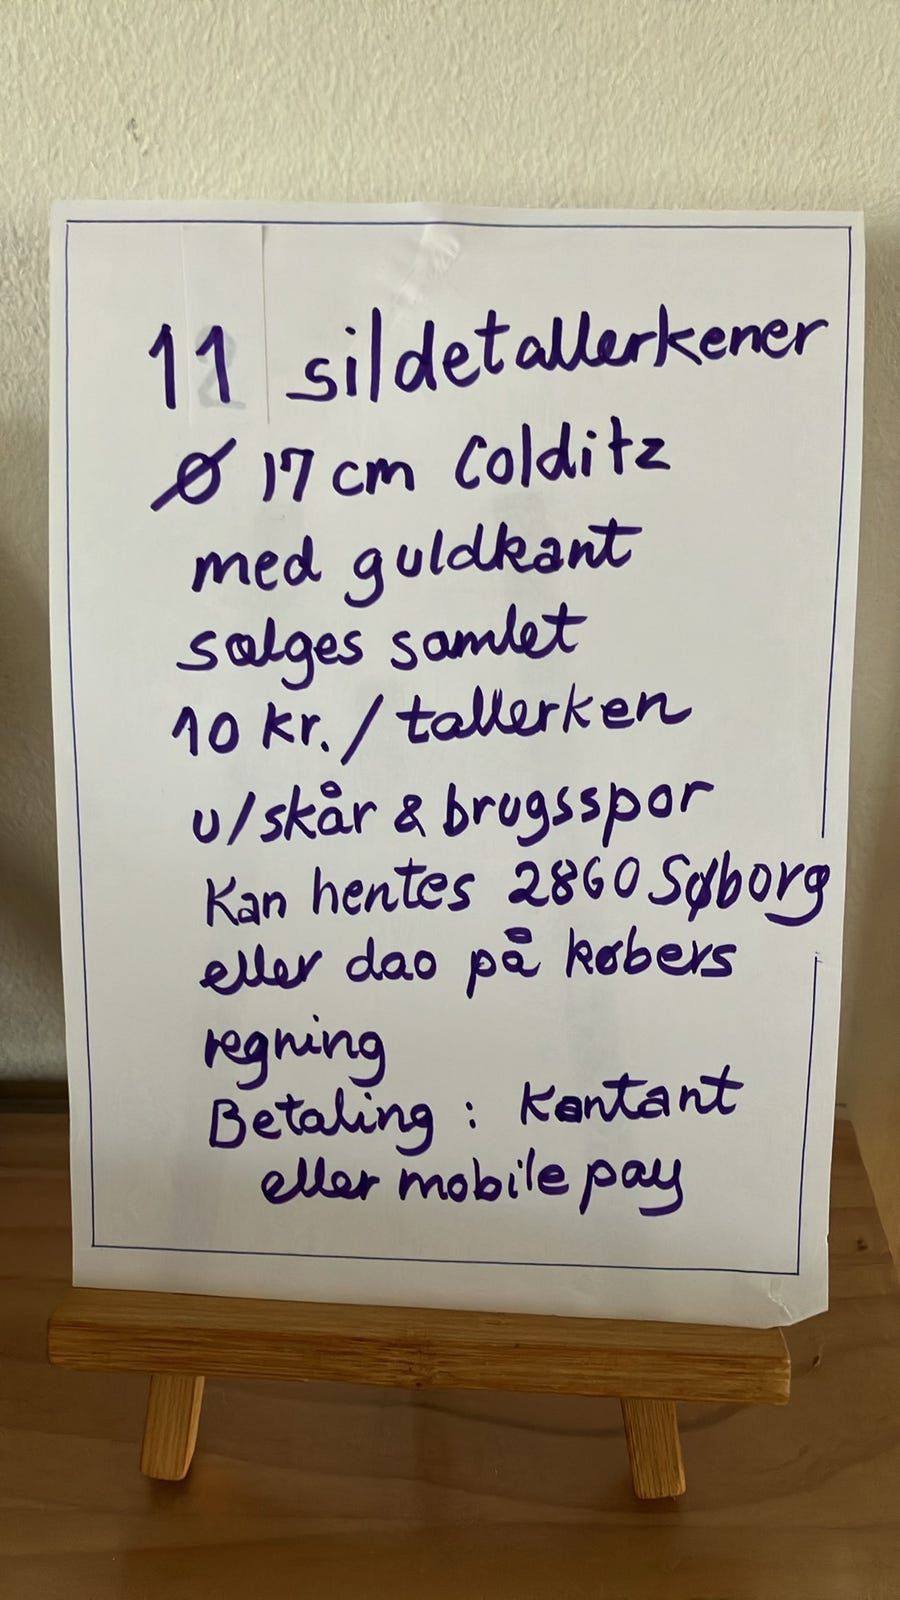 11 sildetallerkener
Ø 17 cm Colditz
med guldkant
sælges samlet
10 kr. / tallerken
u/skår & brugsspor
Kan hentes 2860 Søborg
eller dao på købers
regning
Betaling : Kontant
eller mobile pay